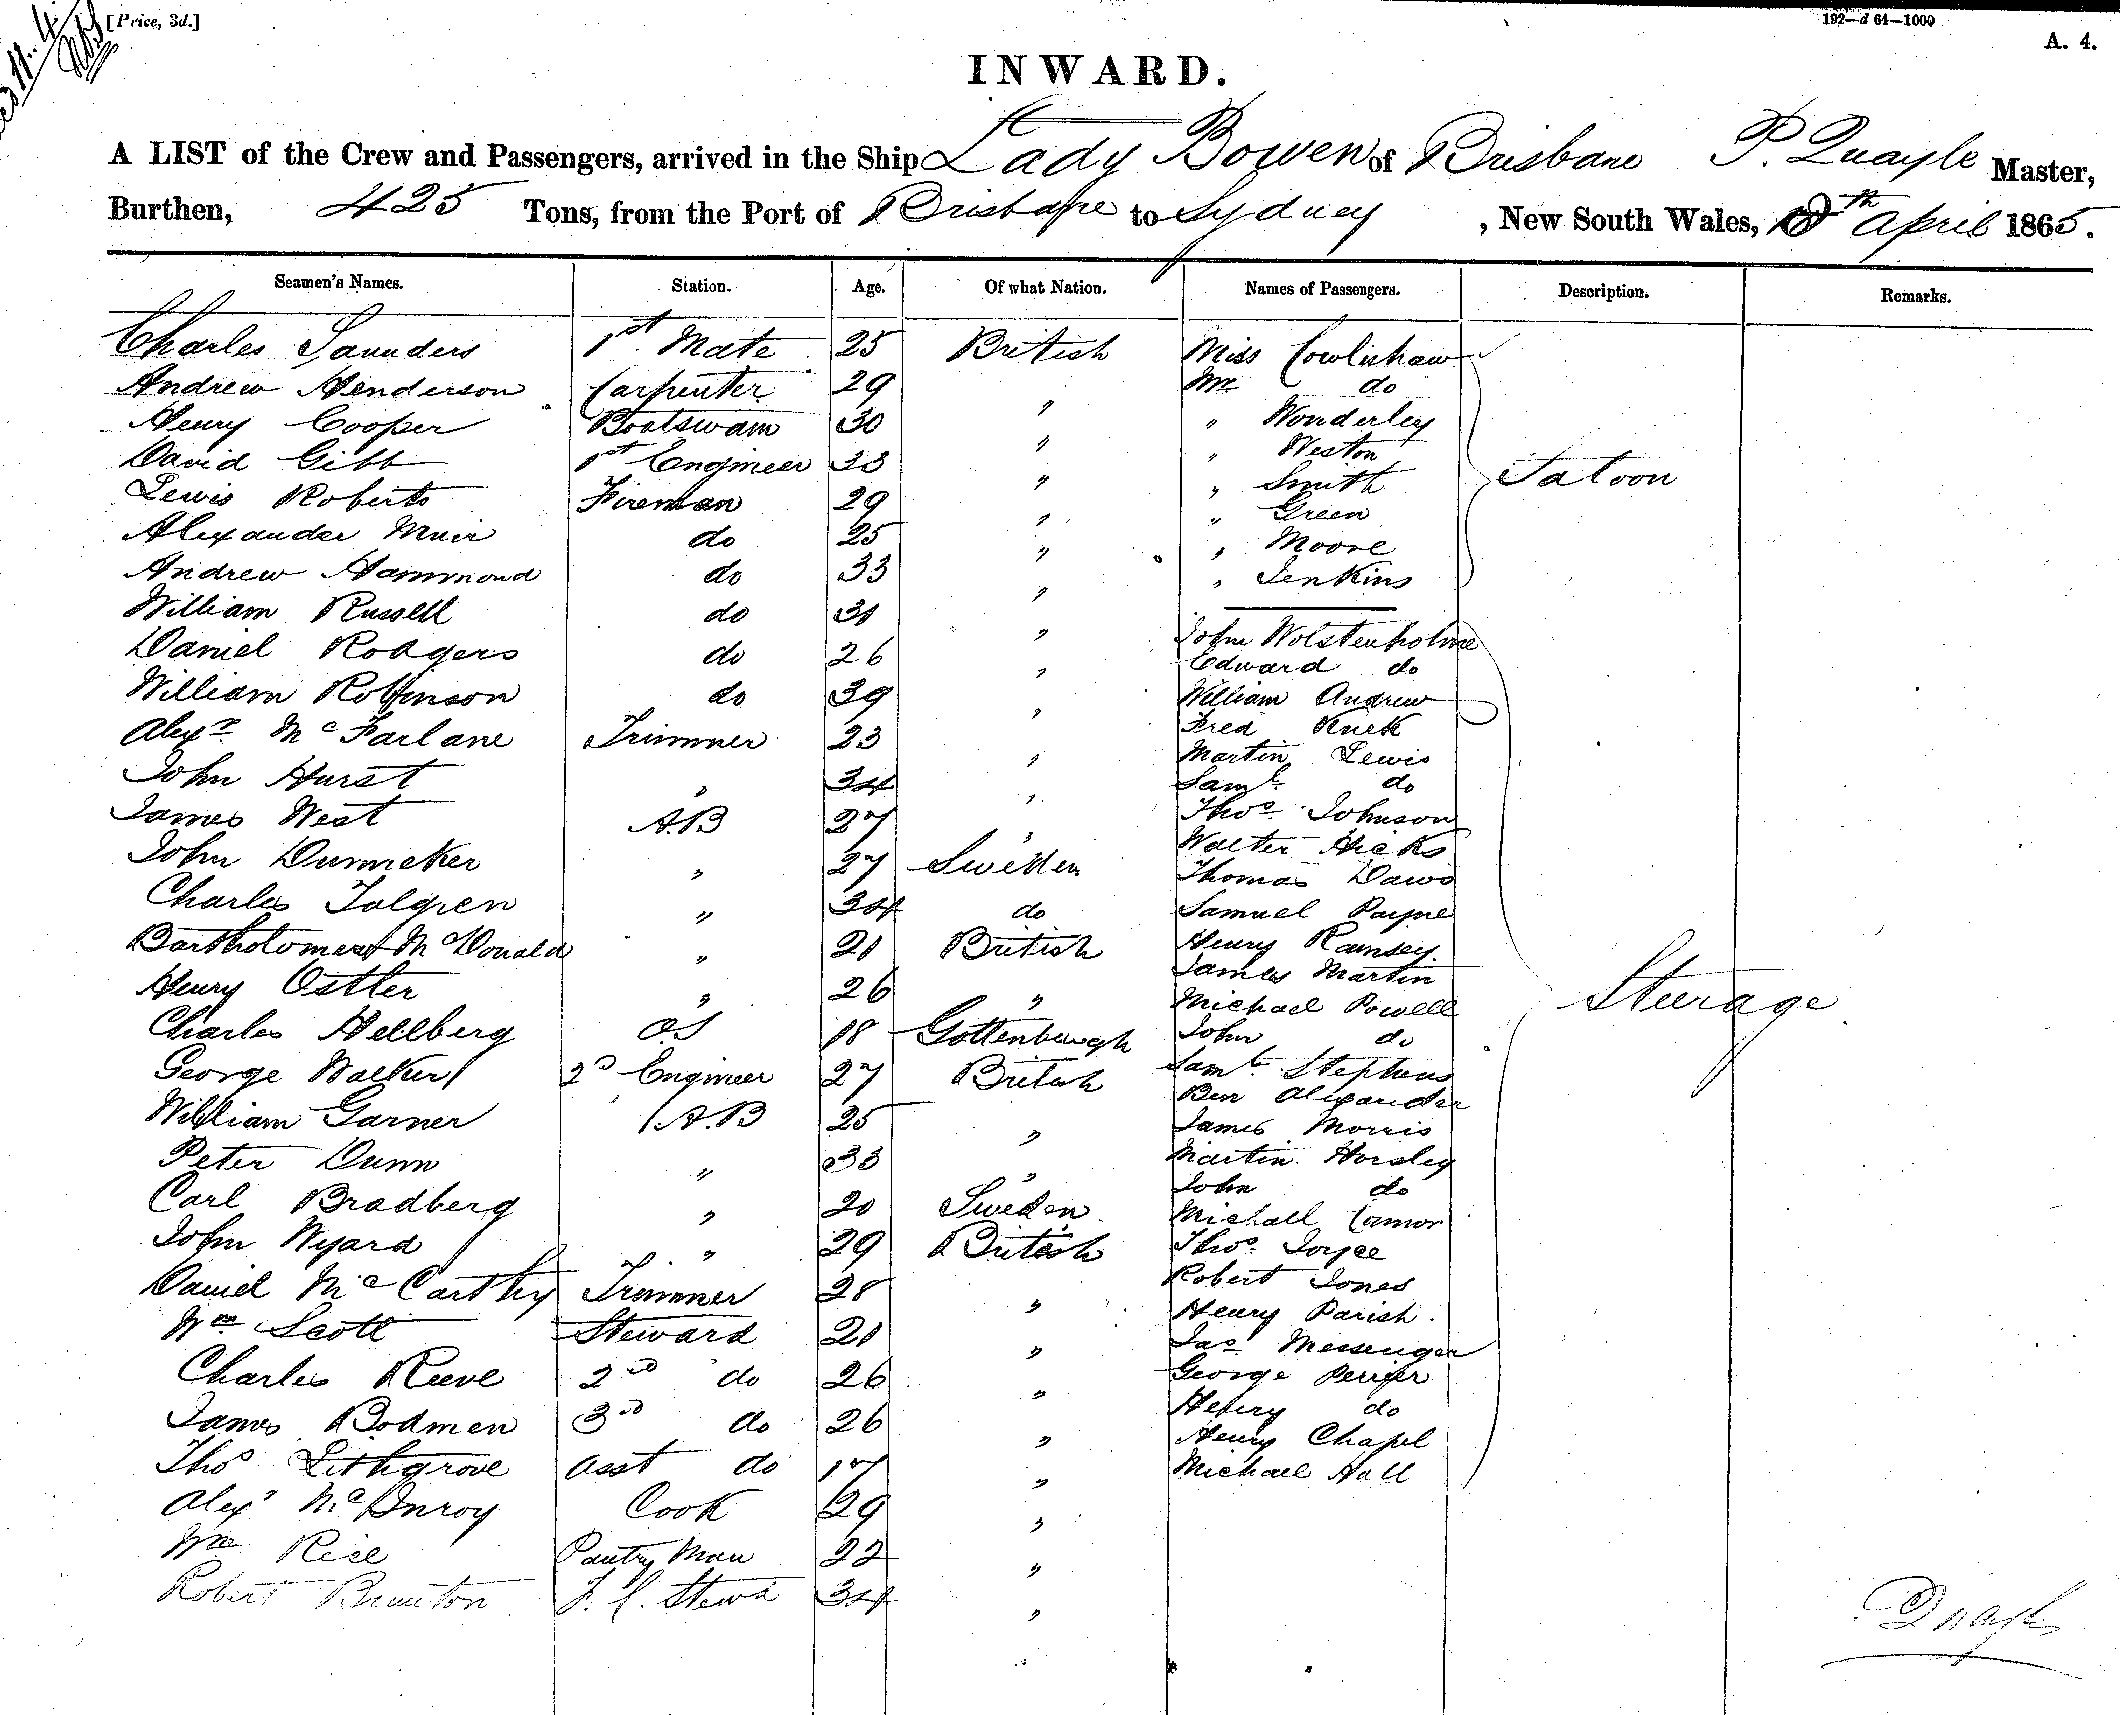 [Price, 3d.]
192—d 64—1000
A. 4.
INWARD.
A LIST of the Crew and Passengers, arrived in the Ship Lady Bowen of Brisbane P. Quayle Master,
Burthen, 425 Tons, from the Port of Brisbane to Sydney, New South Wales, April 1865.
Seamen's Names. Station. Age. Of what Nation. Names of Passengers. Description. Remarks.
Charles Saunders 1st Mate 25 British Miss Cowlishaw
Andrew Henderson Carpenter 29 " Mr do
Henry Cooper Boatswain 30 " " Wonderley
David Gibb 1st Engineer 33 " " Weston
Lewis Roberts Fireman 29 " " Smith Saloon
Alexander Muir do 25 " " Green
Andrew Hammond do 33 " " Moore
William Russell do 31 " " Jenkins
Daniel Rodgers do 26 " John Wolstenholme
William Robinson do 39 " Edward do
Alexr McFarlane Trimmer 23 " William Andrew
John Hurst " 34 " Fred
James West A.B 27 " Martin Lewis
John Dunneker " 27 Sweden Saml do
Charles Tulgren " 34 do Thos Johnson
Bartholomew McDonald " 21 British Walter Hicks
Henry Ostler " 26 " Thomas Daws
Charles Hellberg O.S 18 Gottenburgh Samuel Payne
George Walker 2D Engineer 27 British Henry Ramsey.
William Garner A.B 25 " James Martin
Peter Dunn " 33 " Michael Powell Steerage
Carl Bradberg " 20 Sweden John do
John Wyard " 29 British Saml Stephens
Daniel McCarthy Trimmer 28 " Ben Alexander
Wm Scott Steward 21 " James Morris
Charles Reeve 2nd do 26 " Martin Horsley
James Bodmen 3rd do 26 " John do
Thos Lithgrove asst do 17 " Michael Connor
Alexr McInroy Cook 29 " Thos Joyce
Wm Rice Pantry Man 22 " Robert Jones
Robert Brunton F. C. Stewd 34 " Henry Parish.
Jas Messenger
George
Henry do
Henry Chapel
Michael Hall
Quayle